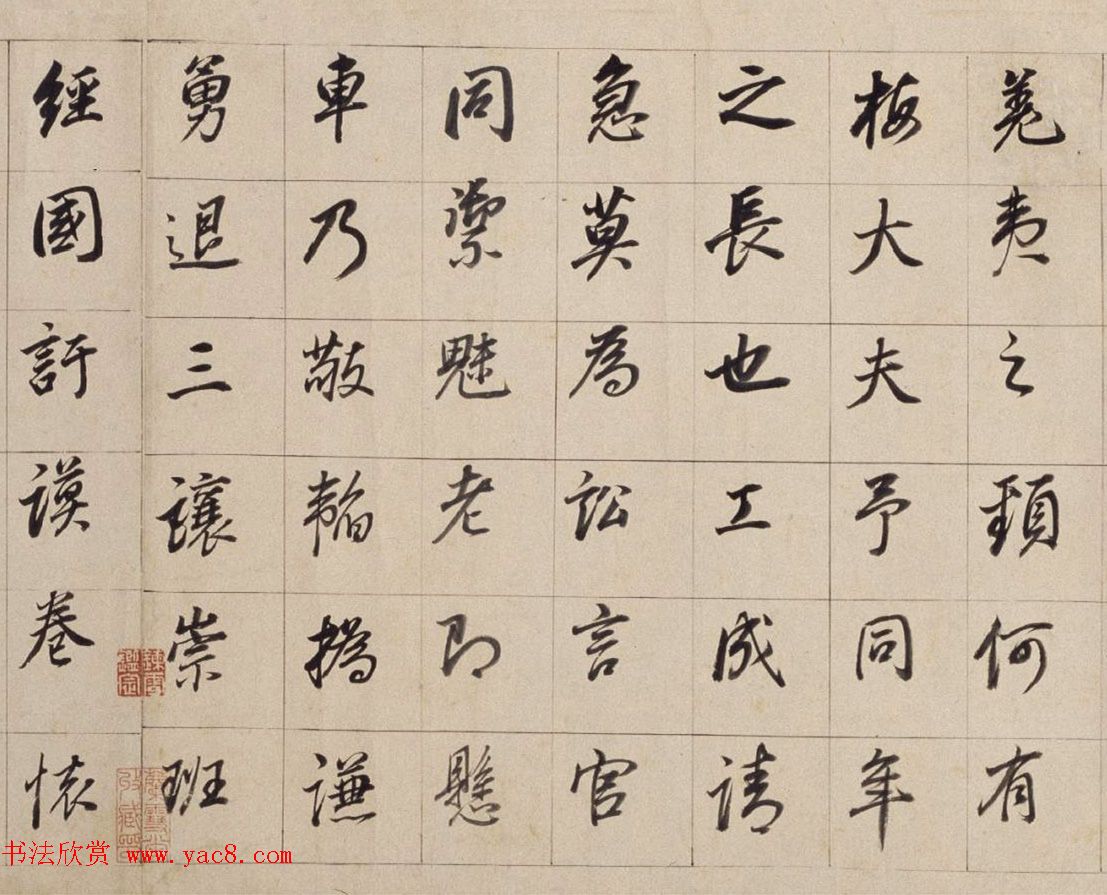 羌夷之頸何有
梅大夫予同年
之長也工成請
急莫為訟言官
同禦魅老即懸
車乃敬韜撝謙
勇退三讓崇班
經國訏謨卷懷
书法欣赏 www.yac8.com